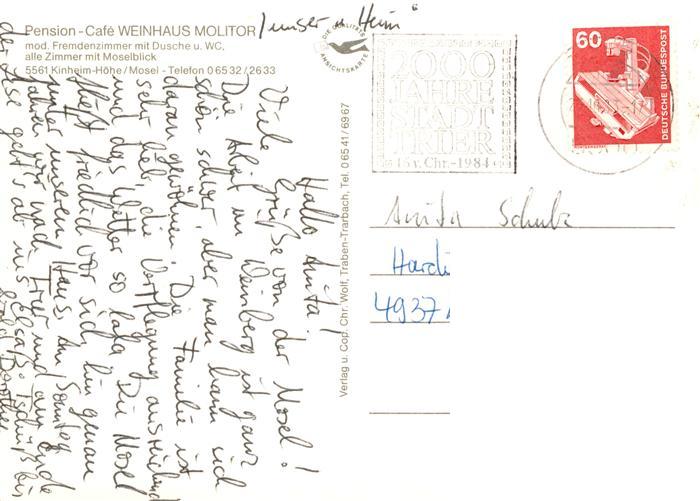 Pension - Café WEINHAUS MOLITOR / "unser" Heim"
mod. Fremdenzimmer mit Dusche u. WC,
alle Zimmer mit Moselblick
5561 Kinheim-Höhe / Mosel - Telefon 0 65 32 / 26 33
DIE QUALITÄTS
ANSICHTSKARTE
2000
JAHRE
STADT
TRIER
16 v. Chr. - 1984
60
DEUTSCHE BUNDESPOST
Hallo Anita!
Viele Grüße von der Mosel!
Die Arbeit im Weinberg ist ganz
schön schwer, aber man kann sich
daran gewöhnen. Die Familie ist
sehr lieb, die Verpflegung ausreichend
und das Wetter so lala. Die Mosel
fließt friedlich vor sich hin genau
unter unserem Haus. Am Sonntag
fahren wir nach Trier und Ende
der geht's ab ins Elsaß. Tschüß bis
Dorothee
Verlag u. Cop. Chr. Wolf, Traben-Trarbach, Tel. 0 65 41 / 69 67
Anita Schulz
Hardi
4937